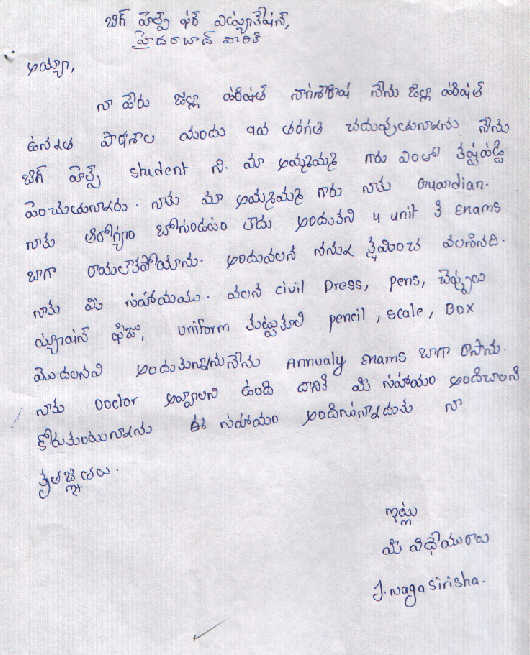 బిగ్ హెల్ప్ ఫర్ ఎడ్యుకేషన్,
హైదరాబాద్
అయ్యా,
నా పేరు జిల్లా పరిషత్ నాగశిరీష నేను జిల్లా పరిషత్
ఉన్నత పాఠశాల యందు తరగతి చదువుతున్నాను నేను
బిగ్ హెల్ప్ student ని. మా అమ్మమ్మ గారు ఎంతో కష్టపడి
పెంచుతున్నారు. నాకు మా అమ్మమ్మ గారు నాకు Guardian.
నాకు ఆరోగ్యం బాగుండడం లేదు అందుకని 4 unit త exams
బాగా రాయలేకపోయాను. అందువలన నన్ను క్షమించ వలసినది.
నాకు మీ సహాయము. వలన civil Press, pens, చెప్పులు
ట్యూషన్ ఫీజు, uniform కుట్టుకూలి pencil, scale, Box
మొదలనవి అందుతున్నాయి నేను Annualy exams బాగా రాసాను.
నాకు Doctor అవ్వాలని ఉంది దానికి మీ సహాయం అందించాలని
కోరుకుంటున్నాను ఈ సహాయం అందిస్తున్నందుకు నా
కృతజ్ఞతలు.
ఇట్లు
మీ విధేయురాలు
J. Naga Sirisha.